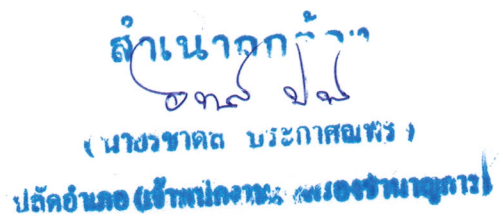 สำเนาถูกต้อง
(นายวชาดล ประกาศณพร)
ปลัดอำเภอ (เจ้าพนักงานปกครองชำนาญการ)